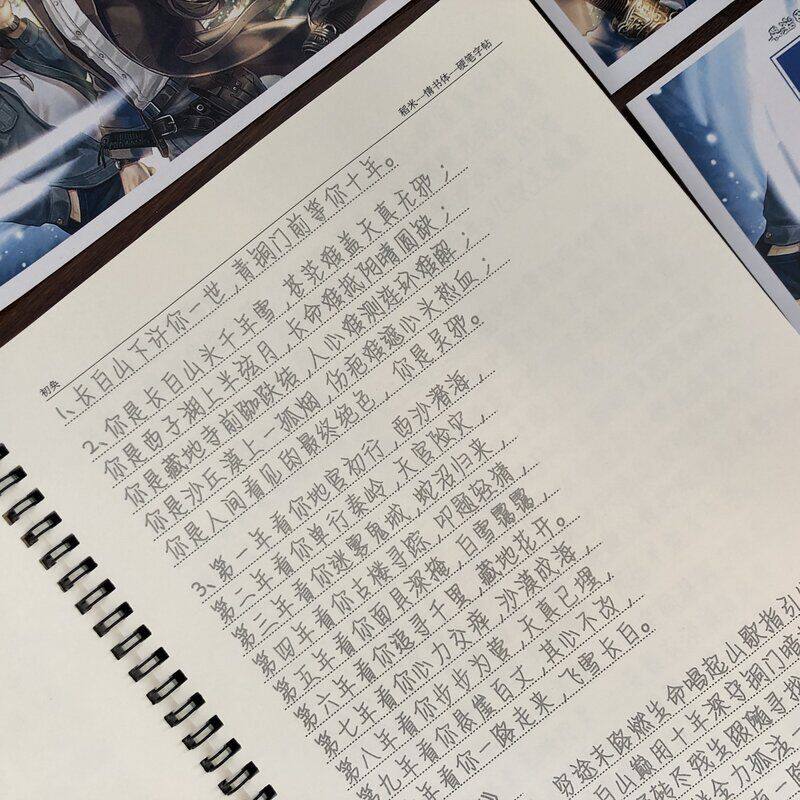 稻米—情书体—硬笔字帖
初奂
1、长白山下许你一世，青铜门前等你十年。
2、你是长白山头千年雪，苍茫难盖天真无邪；
你是西子湖上半弦月，长命难抵阴晴圆缺；
你是藏地寺前蜘蛛结，人心难测连环难解；
你是沙丘漠上一孤烟，伤疤难遮心头热血；
你是人间看见的最终绝色，你是吴邪。
3、第一年看你地宫初行，西沙潜海，
第二年看你单行秦岭，天宫险灾，
第三年看你迷雾鬼城，蛇沼归来，
第四年看你古楼寻踪，叩题轻猜，
第五年看你面具深掩，白雪霭霭，
第六年看你追寻千里，藏地花开。
第七年看你心力交瘁，沙漠成海，
第八年看你步步为营，天真已埋，
第九年看你悬崖百丈，其心不改，
年看你一路走来，飞雪长白。
穷途末路燃生命唱起山歌指引
白山巅用十年深守铜门暗
转尽残生跟随寻找
全力孤法一